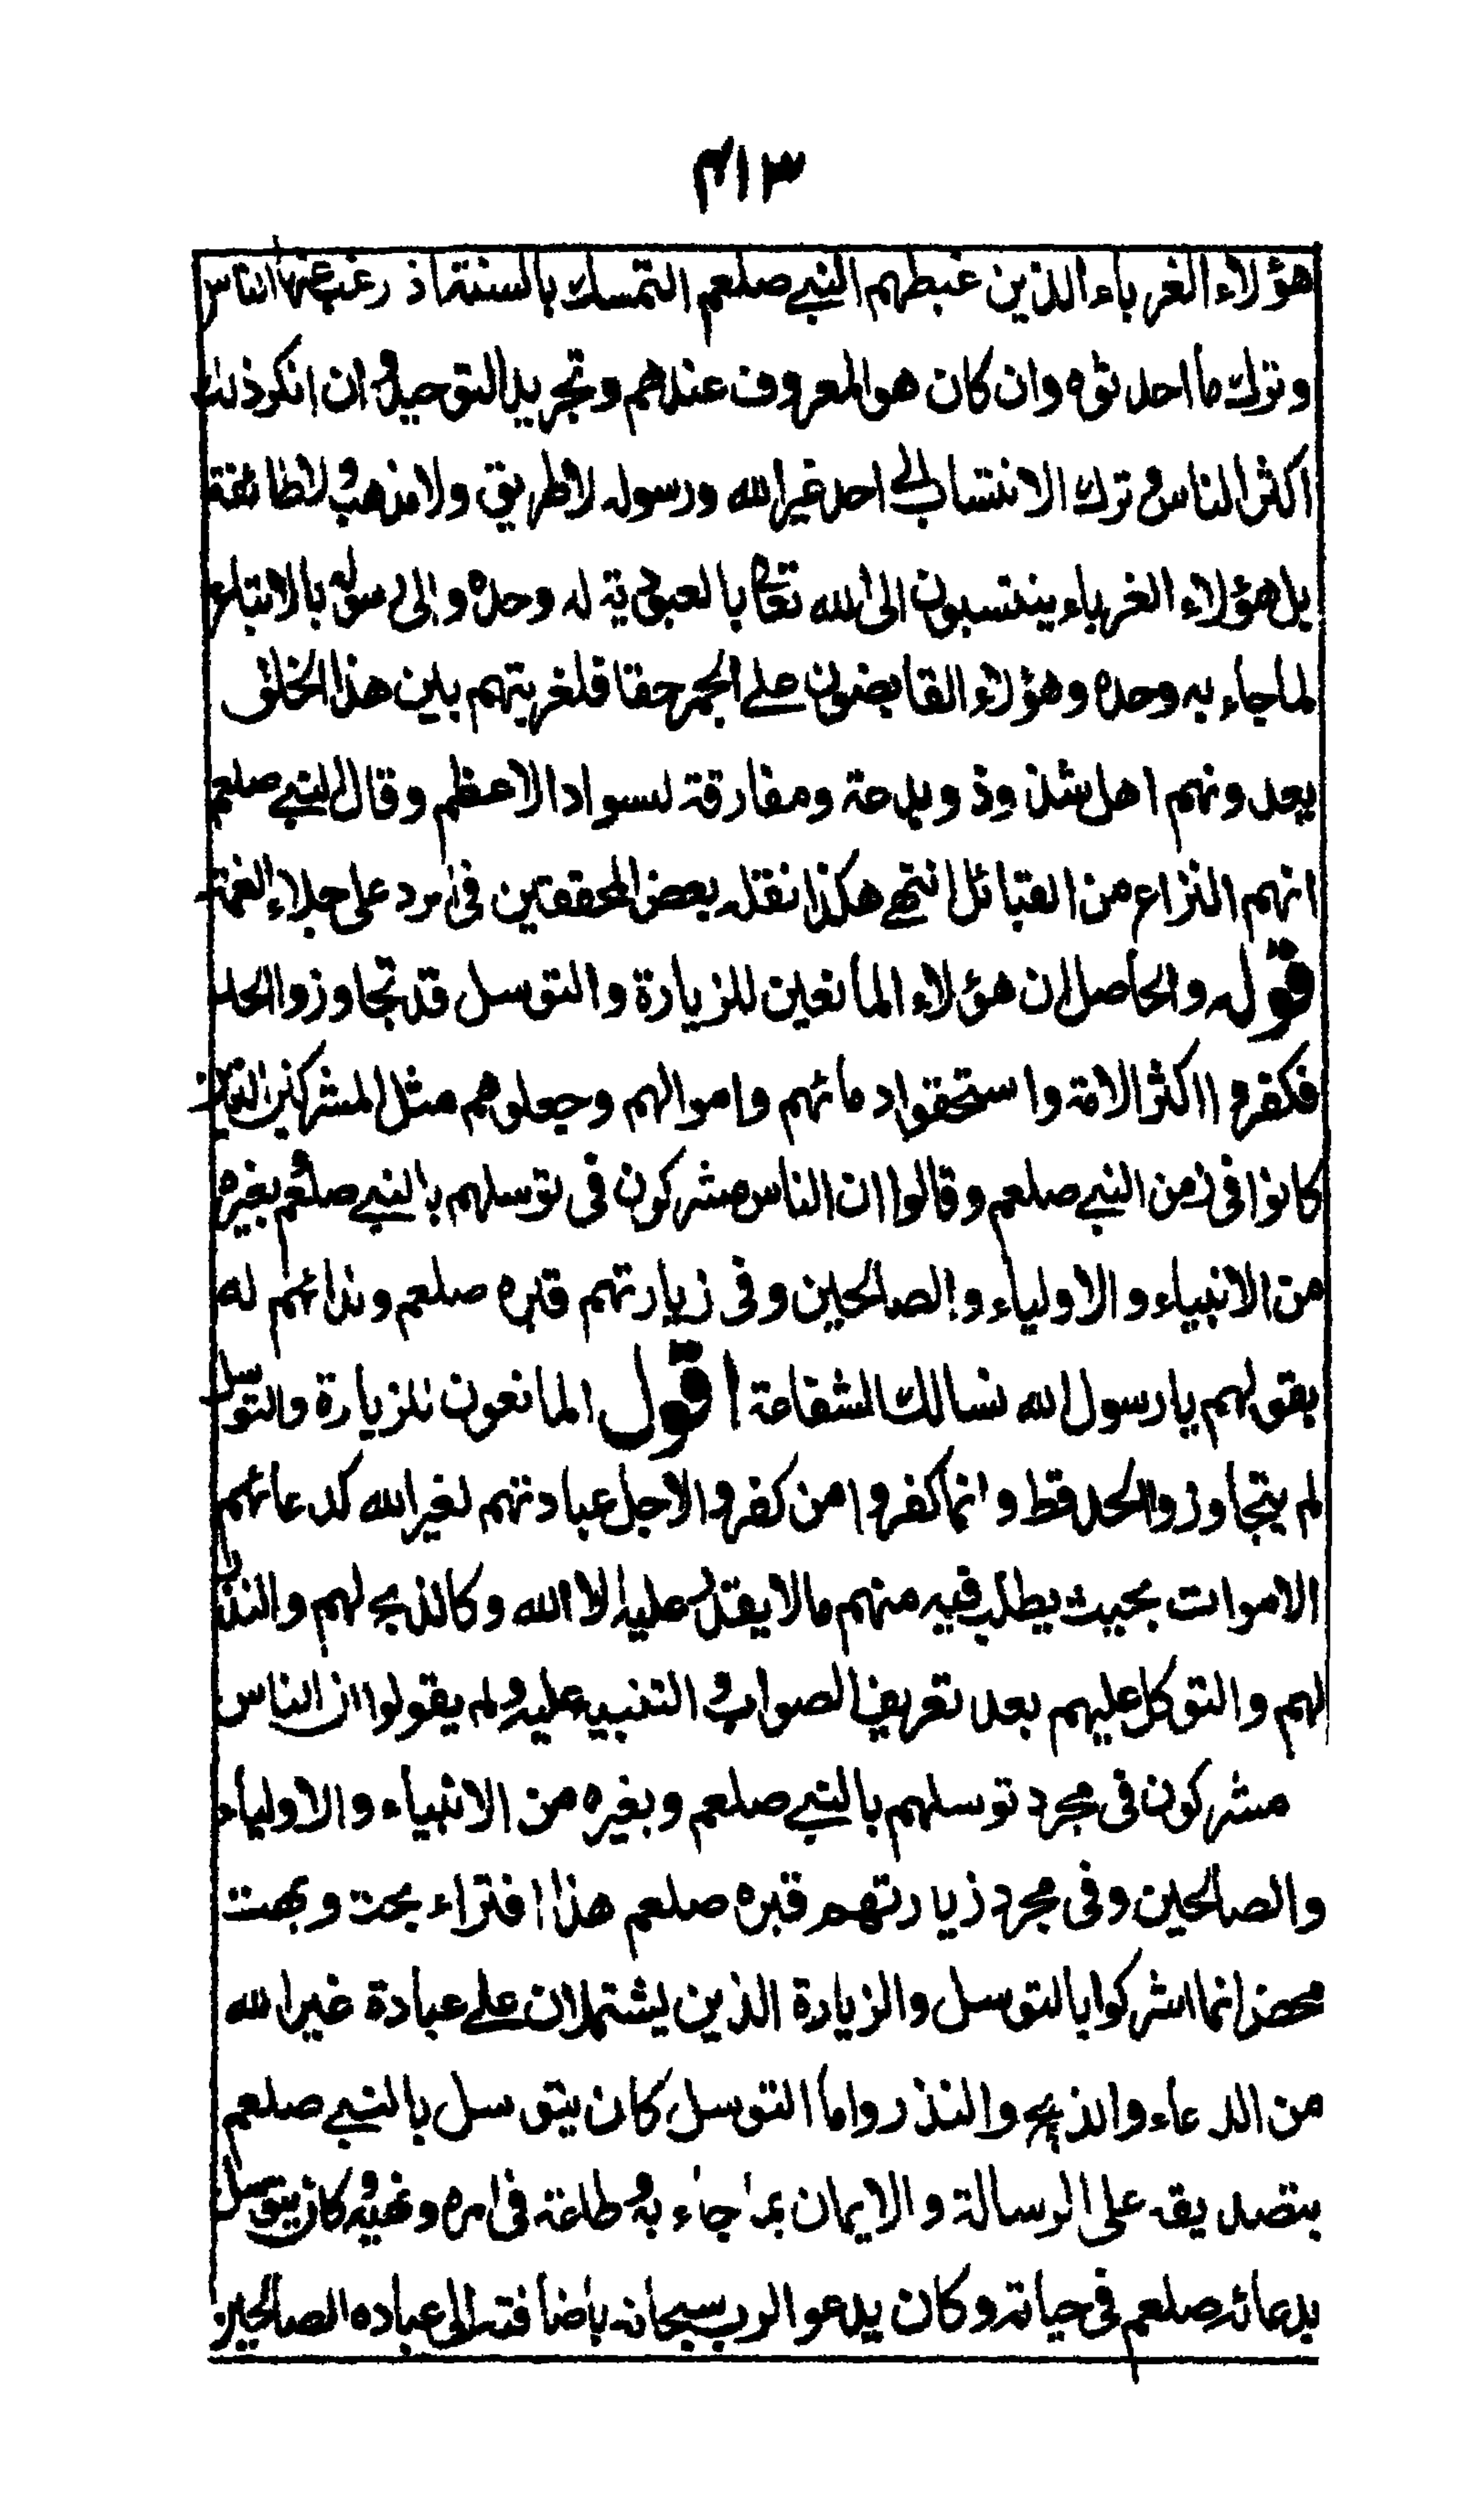 ٤١٣
هؤلاء الغرباء الذين غبطهم النبي صلعم التمسك بالسنة اذ رغب عنها الناس
وترك ما احدثوه وان كان هو المعروف عندهم وتجريد التوحيد وان انكر ذلك
اكثر الناس وترك الانتساب الى احد غير الله ورسوله لا طريق ولا مذهب ولا طائفة
بل هؤلاء الغرباء ينتسبون الى الله تعالى بالعبودية له وحده والى رسوله بالاتباع
لما جاء به وحده وهؤلاء القابضون على الجمر حقا فلغربتهم بين هذا الخلق
يعدونهم اهل شذوذ وبدعة ومفارقة لسواد الاعظم وقال النبي صلعم
انهم النزاع من القبائل انتهى هكذا نقله بعض المحققين في الرد على جلاء الغمة
قوله والحاصل ان هؤلاء المانعين للزيارة والتوسل قد تجاوزوا الحد
فكفروا اكثر الامة واستحقوا دمائهم واموالهم وجعلوهم مثل المشركين الذين
كانوا في زمن النبي صلعم وقالوا ان الناس مشركون في توسلهم بالنبي صلعم وبغيره
من الانبياء والاولياء والصالحين وفي زيارتهم قبره صلعم وندائهم له
بقولهم يا رسول الله نسالك الشفاعة اقول المانعون للزيارة والتوسل
لم يتجاوزوا الحد قط وانما كفروا من كفروا لاجل عبادتهم لغير الله كدعائهم
الاموات بحيث يطلب فيه منهم ما لا يقدر عليه الا الله وكالذبح لهم والنذر
لهم والتوكل عليهم بعد تعريف الصواب والتنبيه عليه ولم يقولوا ان الناس
مشركون في مجرد توسلهم بالنبي صلعم وبغيره من الانبياء والاولياء
والصالحين وفي مجرد زيارتهم قبره صلعم هذا افتراء بحت وبهت
محض انما اشركوا بالتوسل والزيارة الذين يشتملان على عبادة غير الله
من الدعاء والذبح والنذر واما التوسل كان يتوسل بالنبي صلعم
بتصديقه على الرسالة والايمان بما جاء به وطاعة في امره ونهيه وكان يتوسل
بدعائه صلعم في حياته وكان يدعو الرب سبحانه باضافته الى عباده الصالحين